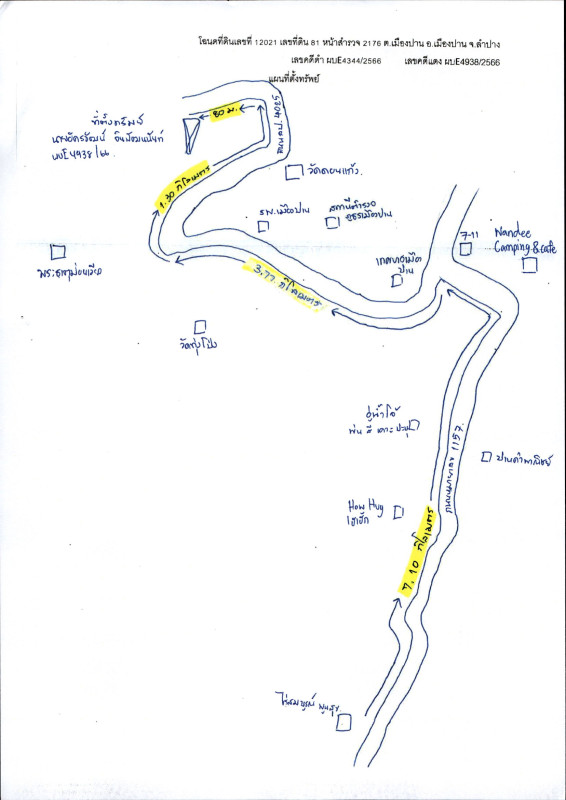 โฉนดที่ดินเลขที่ 12021 เลขที่ดิน 81 หน้าสำรวจ 2176 ต.เมืองปาน อ.เมืองปาน จ.ลำปาง
เลขคดีดำ ผบE4344/2566 เลขคดีแดง ผบE4938/2566
แผนที่ตั้งทรัพย์
ที่ตั้งทรัพย์
ผบE4938/66
80 ม.
1.30 กิโลเมตร
วัดดอนแก้ว
รพ.เมืองปาน
สถานีตำรวจ
ภูธรเมืองปาน
7-11
Nandee
Camping & cafe
เทศบาลเมือง
ปาน
3.77 กิโลเมตร
วัดทุ่งโป่ง
อู่น้ำโจ้
พ่น สี เคาะ ปะผุ
ปานคำพาณิชย์
1157
How Hug
เฮาฮัก
7.10 กิโลเมตร
ไร่สมบูรณ์ พูนสุข